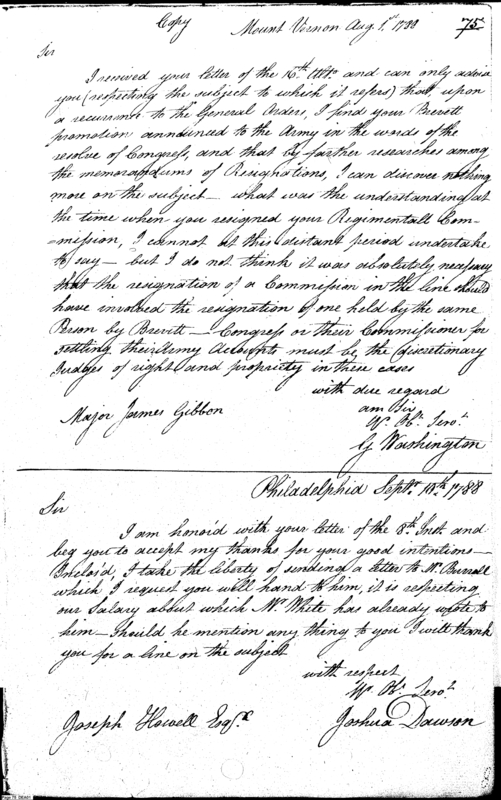 Copy
Mount Vernon Aug. 1st 1788
75
Sir
I received your letter of the 15th Ulto. and can only advise
you (respecting the subject to which it refers) that, upon
a recurrence to the General Orders, I find your Brevett
promotion announced to the Army in the words of the
resolve of Congress, and that by farther researches among
the memorandums of Resignations, I can discover nothing
more on the subject — what was the understanding at
the time when you resigned your Regimentall Com-
-mission, I cannot at this distant period undertake
to say — but I do not think it was absolutely necessary
that the resignation of a Commission in the line should
have involved the resignation of one held by the same
Person by Brevitt — Congress or their Commissioner for
settling their Army Accounts must be the discretionary
Judges of right and propriety in these cases
with due regard
am Sir
Yr. Ht. Servt.
G Washington
Major James Gibbon
Philadelphia Septr. 10th 1788
Sir
I am honor'd with your letter of the 8th Inst. and
beg you to accept my thanks for your good intentions —
Inclos'd, I take the liberty of sending a letter to Mr. Burrall
which I request you will hand to him, it is respecting
our Salary about which Mr. White has already wrote to
him — Should he mention any thing to you I will thank
you for a line on the subject
with respect
Yr. Ht. Servt.
Joshua Dawson
Joseph Howell Esqr.